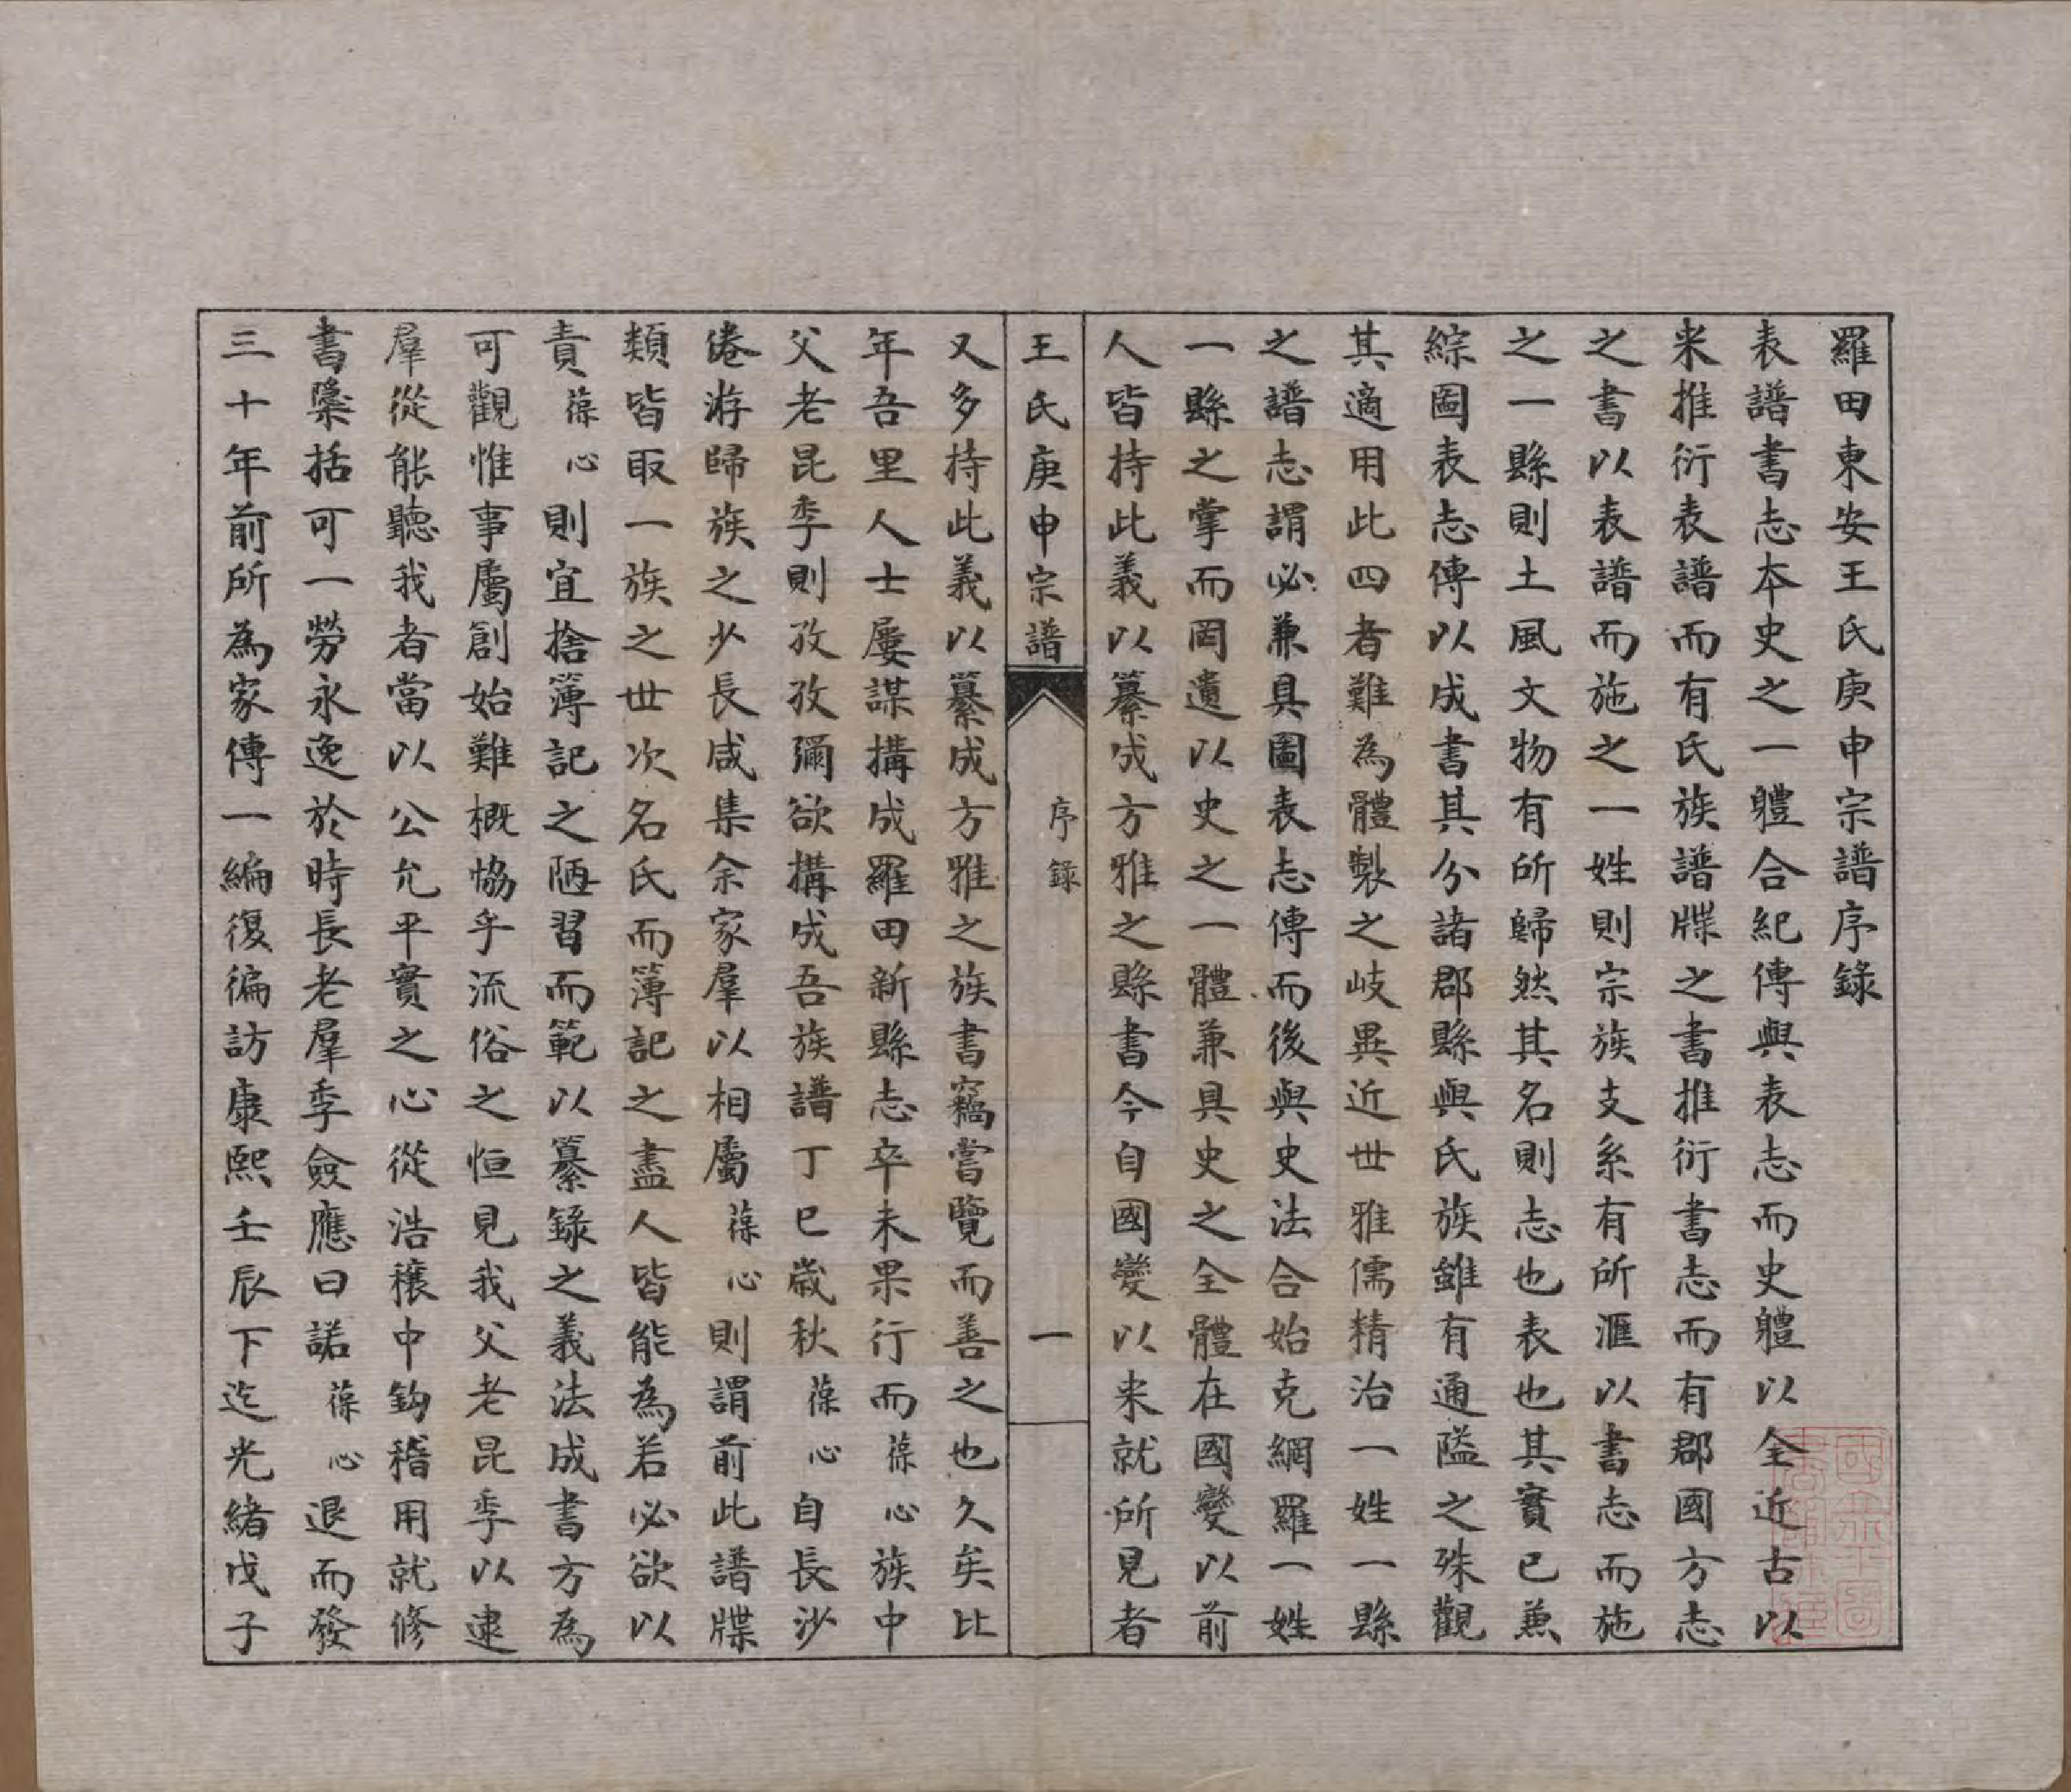 羅田東安王氏庚申宗譜序錄
表譜書志本史之一體合紀傳與表志而史體以全近古以
来推衍表譜而有氏族譜牒之書推衍書志而有郡國方志
之書以表譜而施之一姓則宗族支系有所滙以書志而施
之一縣則土風文物有所歸然其名則志也表也其實已兼
綜圖表志傳以成書其分諸郡縣與氏族雖有通隘之殊觀
其適用此四者難為體製之岐異近世雅儒精治一姓一縣
之譜志謂必兼具圖表志傳而後與史法合始克網羅一姓
一縣之掌而罔遺以史之一體兼具史之全體在國變以前
人皆持此義以纂成方雅之縣書今自國變以来就所見者
王氏庚申宗譜
序錄
一
又多持此義以纂成方雅之族書竊嘗覽而善之也久矣比
年吾里人士屢謀搆成羅田新縣志卒未果行而葆心族中
父老昆季則孜孜彌欲搆成吾族譜丁巳歲秋葆心自長沙
倦游歸族之少長咸集余家羣以相屬葆心則謂前此譜牒
類皆取一族之世次名氏而簿記之盡人皆能為若必欲以
責葆心則宜捨簿記之陋習而範以纂錄之義法成書方為
可觀惟事屬創始難概恊乎流俗之恒見我父老昆季以逮
羣從能聽我者當以公允平實之心從浩穰中鈎稽用就修
書檃括可一勞永逸於時長老羣季僉應曰諾葆心退而發
三十年前所為家傳一編復徧訪康熙壬辰下迄光緒戊子